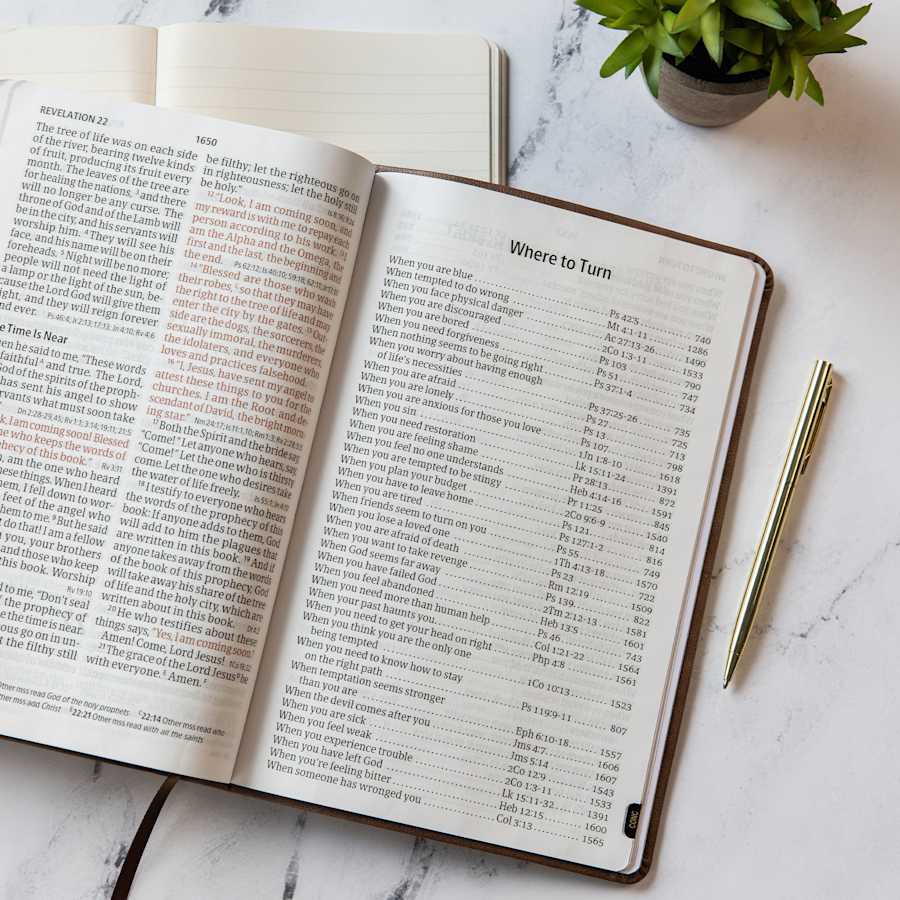 REVELATION 22
1650
The tree of life was on each side
of the river, bearing twelve kinds
of fruit, producing its fruit every
month. The leaves of the tree are
for healing the nations, 3 and there
will no longer be any curse. The
throne of God and of the Lamb will
be in the city, and his servants will
worship him. 4 They will see his
face, and his name will be on their
foreheads. 5 Night will be no more;
people will not need the light of
a lamp or the light of the sun, be-
cause the Lord God will give them
ight, and they will reign forever
nd ever.
e Time Is Near
en he said to me, "These words
faithful and true. The Lord,
God of the spirits of the proph-
has sent his angel to show
rvants what must soon take
k, I am coming soon! Blessed
ne who keeps the words of
hecy of this book."
, am the one who heard
hese things. When I heard
them, I fell down to wor-
feet of the angel who
them to me. 9 But he said
do that! I am a fellow
you, your brothers
and those who keep
this book. Worship
Rv 19:10
d to me, "Don't seal
f the prophecy of
e the time is near.
ous go on in un-
t the filthy still
be filthy; let the righteous go on
in righteousness; let the holy still
be holy."
12 "Look, I am coming soon, and
my reward is with me to repay each
person according to his work. 13 I
am the Alpha and the Omega, the
first and the last, the beginning and
the end.
14 "Blessed are those who wash
their robes, so that they may have
the right to the tree of life and may
enter the city by the gates. 15 Out-
side are the dogs, the sorcerers, the
sexually immoral, the murderers,
the idolaters, and everyone who
loves and practices falsehood.
16 "I, Jesus, have sent my angel to
attest these things to you for the
churches. I am the Root and de-
scendant of David, the bright morn-
ing star."
17 Both the Spirit and the bride say,
"Come!" Let anyone who hears, say,
"Come!" Let the one who is thirsty
come. Let the one who desires take
the water of life freely.
18 I testify to everyone who hears
the words of the prophecy of this
book: If anyone adds to them, God
will add to him the plagues that
are written in this book. 19 And if
anyone takes away from the words
of the book of this prophecy, God
will take away his share of the tree
of life and the holy city, which are
written about in this book.
20 He who testifies about these
things says, "Yes, I am coming soon."
Amen! Come, Lord Jesus!
21 The grace of the Lord Jesus be
with everyone. Amen.
Other mss read God of the holy prophets 22:14 Other mss read who
ther mss add Christ 22:21 Other mss read with all the saints
Where to Turn
When you are blue Ps 42:5 740
When tempted to do wrong Mt 4:1-11 1286
When you face physical danger Ac 27:13-26 1496
When you are discouraged 2Co 1:3-11 1533
When you are bored Ps 103 790
When you need forgiveness Ps 51 747
When nothing seems to be going right Ps 37:1-4 734
When you worry about having enough
of life's necessities Ps 37:25-26 735
When you are afraid Ps 27 725
When you are lonely Ps 13 713
When you are anxious for those you love Ps 107 798
When you sin 1Jh 1:8-10 1618
When you need restoration Lk 15:11-24 1391
When you are feeling shame Pr 28:13 872
When you feel no one understands Heb 4:14-16 1591
When you are tempted to be stingy Pr 11:25 845
When you plan your budget 2Co 9:6-9 1540
When you have to leave home Ps 121 814
When you are tired Ps 127:1-2 816
When friends seem to turn on you Ps 55 749
When you lose a loved one 1Th 4:13-18 1570
When you are afraid of death Ps 23 722
When you want to take revenge Rm 12:19 1509
When God seems far away Ps 139 822
When you have failed God 2Tm 2:12-13 1581
When you feel abandoned Heb 13:5 1601
When you need more than human help Ps 46 743
When your past haunts you Col 1:21-22 1564
When you need to get your head on right Php 4:8 1561
When you think you are the only one
being tempted 1Co 10:13 1523
When you need to know how to stay
on the right path Ps 119:9-11 807
When temptation seems stronger
than you are Eph 6:10-18 1557
When the devil comes after you Jms 4:7 1606
When you are sick Jms 5:14 1607
When you feel weak 2Co 12:9 1543
When you experience trouble 2Co 1:3-11 1533
When you have left God Lk 15:11-32 1391
When you're feeling bitter Heb 12:15 1600
When someone has wronged you Col 3:13 1565